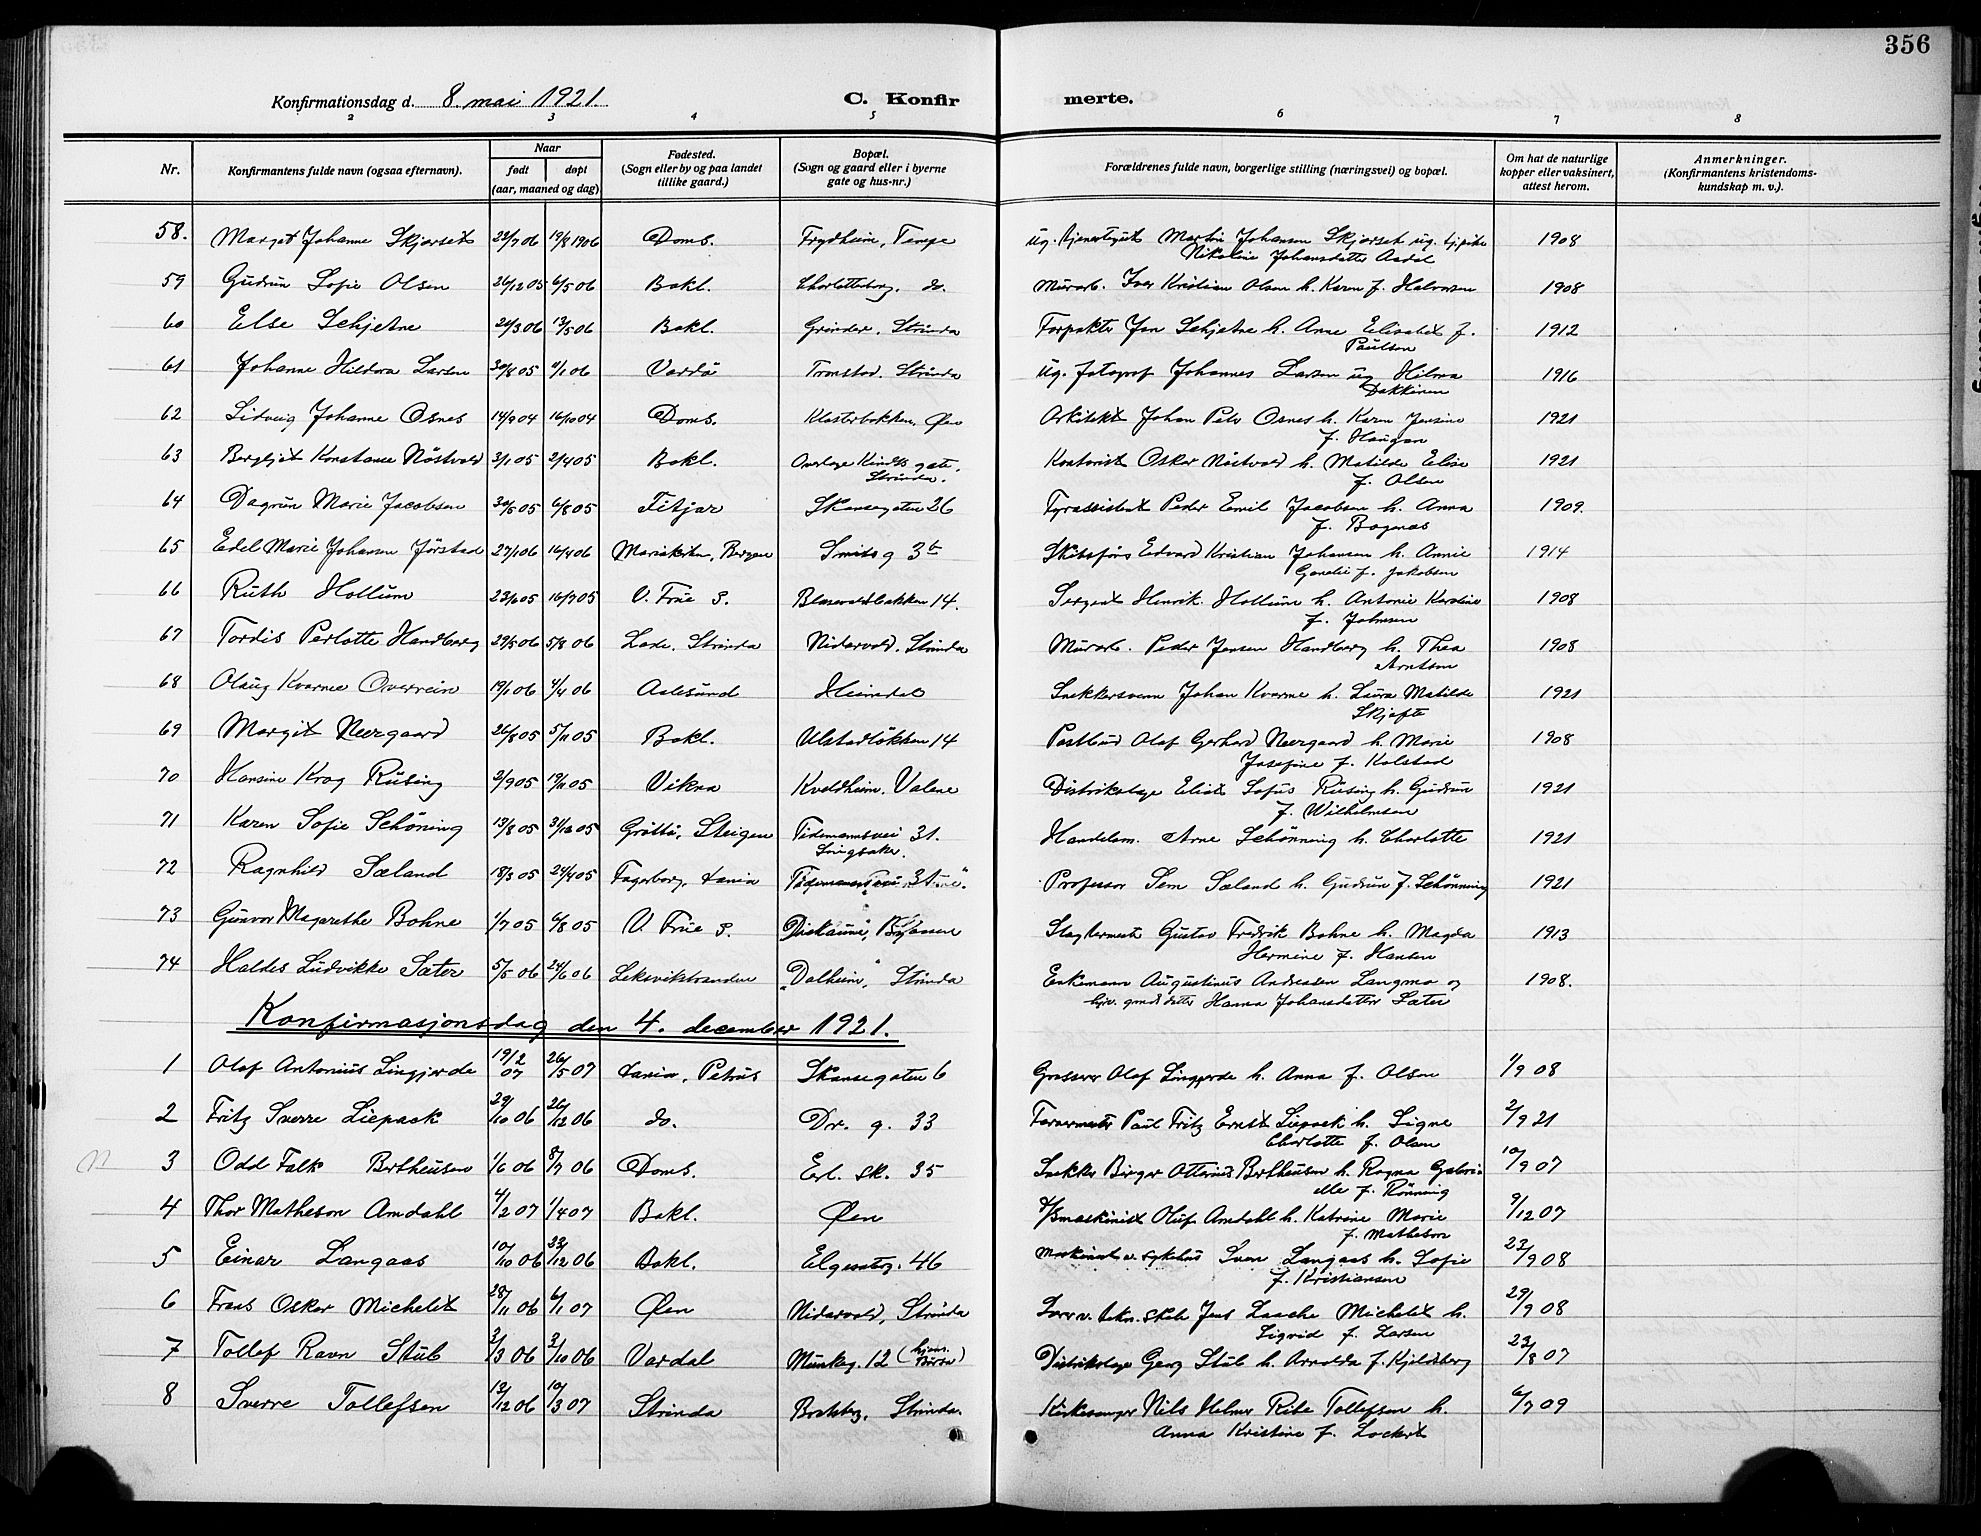 356
Konfirmationsdag d. 8. mai 1921. C. Konfirmerte.
2 3 4 5 6 7 8
Nr. Konfirmantens fulde navn (ogsaa efternavn). Naar født døpt (aar, maaned og dag) Fødested. (Sogn eller by og paa landet tillike gaard.) Bopæl. (Sogn og gaard eller i byerne gate og hus-nr.) Forældrenes fulde navn, borgerlige stilling (næringsvei) og bopæl. Om hat de naturlige kopper eller vaksinert, attest herom. Anmerkninger. (Konfirmantens kristendomskundskap m. v.).
58. Margit Johanne Skjerset 22/7 06 19/8 1906 Doms. Frydheim, Tempe ug. Martin Johansen Skjerset ug. Nikoline Johansdatter Aadal 1908
59 Gudrun Sofie Olsen 26/12 05 6/5 06 Bakl. Charlottenborg. do. Murarb. Iver Kristian Olsen h. Karen f. Halvorsen 1908
60 Else Schjetne 24/3 06 13/5 06 Bakl. Grinder, Strinda Forpakter Jon Schjetne h. Anne Elisabet f. Paulsen 1912
61 Johanne Hildora Larsen 30/8 05 06 Vardö Tronstad. Strinda ug. fotograf Johannes Larsen ug Hilma Dakkinen 1916
62 Sidveig Johanne Osnes 14/9 04 16/10 04 Doms. Klosterbakken, Øen Arkitekt Johan Petr Osnes h. Karen Jensine f. Haugan 1921
63 Bergljot Konstanse Nöstvold 3/1 05 2/4 05 Bakl. Overlege Kindts gate, Strinda. Kontorist Oskar Nöstvold h. Matilde Elise f. Olsen 1921
64 Dagrun Marie Jacobsen 30/5 05 6/8 05 Fitjar Skansegaten 26 Fyrassistent Peder Emil Jacobsen h. Anna f. Bagnas 1909.
65 Edel Marie Johansen Jörstad 27/1 06 16/4 06 Mariakirken, Bergen Smitsg 3b Skibsförs Edvard Kristian Johansen h. Annie f. Jakobsen 1914
66 Ruth Hollum 23/6 05 16/7 05 V. Frue S. Blusevoldbakken 14. Sergent Henrik Hollum h. Antonie Karoline f. Johnsen 1908
67 Tordis Perlotte Handberg 29/5 06 5/8 06 Lade, Strinda Nidarvold. Strinda Murarb. Peder Jensen Handberg h. Thea Arntsen 1908
68 Olaug Kverne Overrein 19/1 06 4/4 06 Aalesund Heimdal Snekkersvenn Johan Kverne h. Laura Matilde Skjefte 1921
69 Margit Neergaard 26/8 05 5/11 05 Bakl. Ulstadlökken 14 Postbud Olaf Gerhard Neergaard h. Marie Josefine f. Kolstad 1908
70 Hansine Krog Rusing 3/9 05 19/11 05 Vikna Kveldheim. Valene Distrikslege Elias Sofus Rusing h. Gudrun f. Wilhelmsen 1921
71 Karen Sofie Schöning 13/8 05 31/12 05 Gröttö, Steigen Tidemannsvei 31. Singsaker. Handelsm. Arne Schönning h. Charlotte 1921
72 Ragnhild Sæland 18/3 05 24/4 05 Fagerborg, Xania Professor Sem Sæland h. Gudrun f. Schönning 1921
73 Gunvor Magarethe Bohne 1/7 05 6/8 05 V. Frue S. Slagtermester Gustav Fredrik Bohne h. Magda Hermine f. Hansen 1913
74 Haldis Ludvikke Sæter 5/5 06 24/6 06 Leksvikstranden "Dalheim," Strinda Enkemann Augustinus Andreasen Langmo og Hanna Johansdatter Sæter 1908.
Konfirmasjonsdag den 4. december 1921.
1 Olaf Antonius Lingjerde 19/2 07 26/5 07 Xania, Petrus Skansegaten 6 Grosserer Olaf Lingjerde h. Anna f. Olsen 1/9 08
2 Fritz Sverre Liepack 29/10 06 26/12 06 do. Dr. g. 33 Farvermester Paul Fritz Ernst Liepack h. Signe Charlotte f. Olsen 2/9 21
3 Odd Falk Bertheusen 1/6 06 8/7 06 Doms. Erl. Sk. 35 Snekker Birger Otternius Bertheusen h. Ragna Gabrielle f. Rönning 10/9 07
4 Thor Matheson Amdahl 4/2 07 1/4 07 Bakl. Øen Oluf Amdahl h. Katrine Marie f. Matheson 9/12 07
5 Einar Langaas 10/10 06 23/12 06 Bakl. Elgesetg. 46 Maskinist v. sykehus Sven Langaas h. Sofie f. Kristiansen 23/9 08
6 Frans Oskar Michelet 28/11 06 6/1 07 Øen Nidarvold, Strinda Jens Laache Michelet h. Sigrid f. Larsen 29/9 08
7 Tollef Ravn Stub 2/3 06 2/10 06 Vardal Munkeg. 12 Distrikslege Georg Stub h. Arnolda f. Kjeldsberg 23/8 07
8 Sverre Tollefsen 12/12 06 10/3 07 Strinda Bratsberg, Strinda. Kirkesanger Nils Helmer Rite Tollefsen h. Anna Kristine f. Lockert 6/7 09